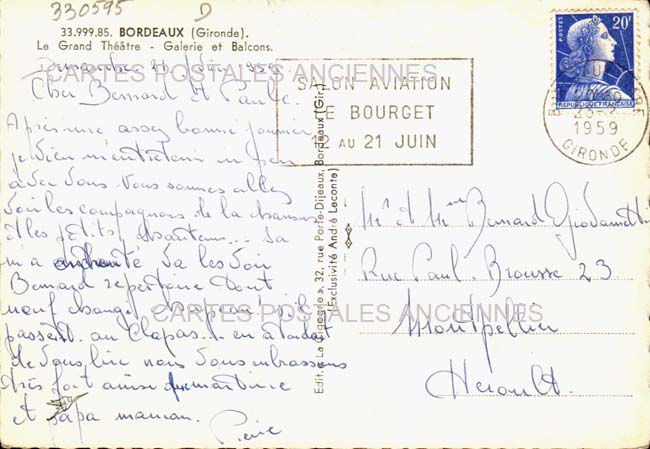 330595 D
33.999.85. BORDEAUX (Gironde).
Le Grand Théâtre - Galerie et Balcons.
Dimanche 21 1959
CARTES POSTALES ANCIENNES
Cher Bernard et Paule.
Après une assez bonne journée
je viens m'entretenir un peu
avec vous. Nous sommes allés
voir les compagnons de la chanson
et les petits chanteurs... sa
m'a enchanté va les voir
Bernard repertoire tout
neuf changé s'ils
passent au Clapas... en attendant
de vous lire nous vous embrassons
très fort ainsi que martine
et papa maman.
Pierre
SALON AVIATION
LE BOURGET
12 AU 21 JUIN
1959
GIRONDE
20F
REPUBLIQUE FRANÇAISE
Edit. La Cigogne, 32, rue Porte-Dijeaux, Bordeaux (Gir.)
(Exclusivité André Leconte)
Mr et Mme Bernard
Rue Paul Brousse 23
CARTES POSTALES ANCIENNES
Montpellier
Herault.